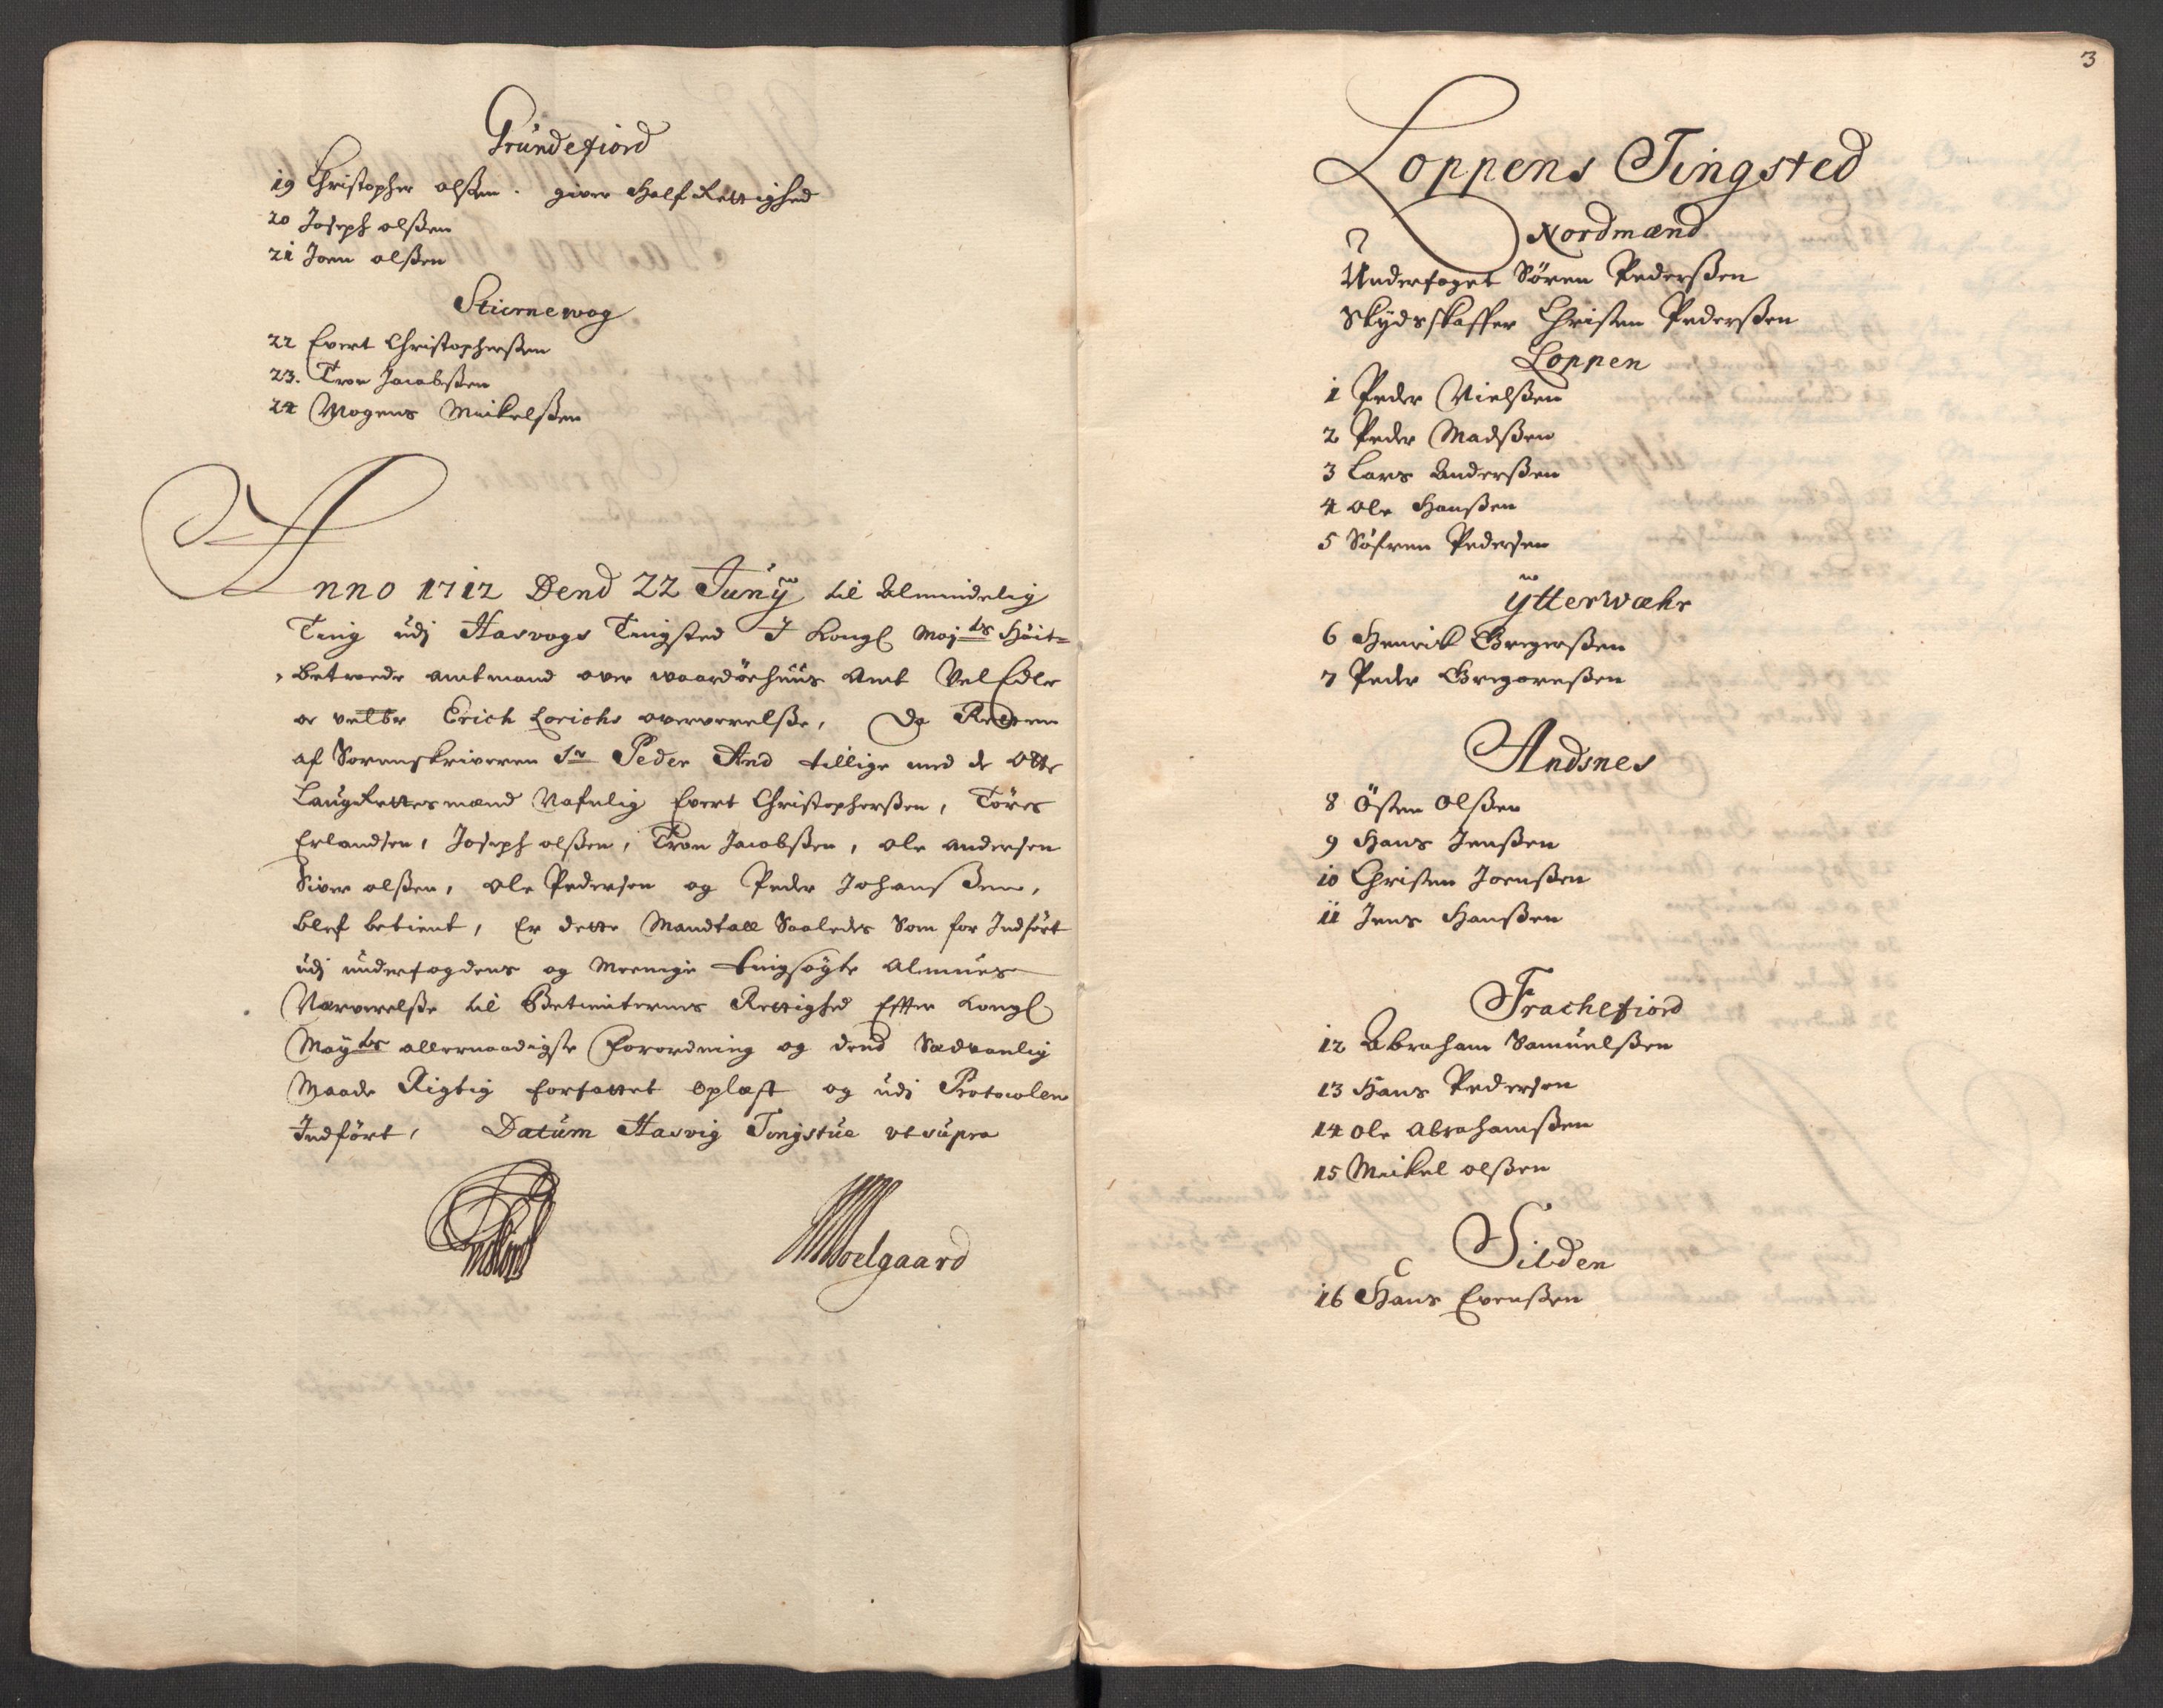 Gründefiord
19 Christopher olßen. giver Half Rettighed
20 Joseph olßen
21 Joen olßen
Stiernewog
22 Evert Christopherßen
23. Tron Jacobßen
24 Mogens Mickelßen
Anno 1712 Dend 22 Junÿ til Almindelig
Ting udj Hasvogs Tingsted J Kongl Maj.ts Höit-
betroede Amtmand over waardöehuus Amt Vel Edle
oc velbr Erich Lorichs oververelße, Da Retten
af Sorenskriveren Sr Peder And tillige med de Otte
LaugRettesmænd Nafnlig Evert Christopherßen, Töres
Erlandsen, Joseph olßen, Tron Jacobßen, ole andersen
Siver olßen, ole Pedersen og Peder Johanßen,
blef betient, Er dette Mandtall Saaledes Som for Indfört
udj underfogdens og Meenige tingsögte Almues
Nærverelße til Betienternes Rettighed Effter Kongl
May.ts allernaadigste Forordning og dend Sædvanlig
Maade Rigtig forfattet oplæst og udj Protocolen
Indfört, Datum Hasvig Tingstue ut supra
Moelgaard
3
Loppens Tingsted
Nordmænd
Underfoget Sören Pederßen
Skydsskaffer Christen Pederßen
Loppen
1 Peder Nielßen
2 Peder Madßen
3 Lars Anderßen
4 Ole Hanßen
5 Söfren Pedersen
ÿtterwæhr
6 Henrick Gregersßen
7 Peder Gregoreßen
Andsnes
8 Östen Olßen
9 Hans Jenßen
10 Christen Joenßen
11 Jens Hanßen
Frachefiord
12 Abraham Samuelßen
13 Hans Pedersen
14 Ole Abrahamßen
15 Mickel olßen
Silden
16 Hans Evenßen